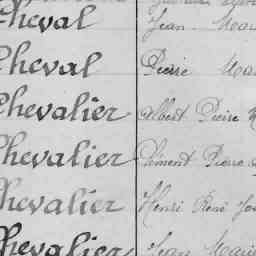 Cheval Jean
Cheval Pierre
Chevalier Albert Pierre
Chevalier Clément Pierre
Chevalier Henri René
Chevalier Jean